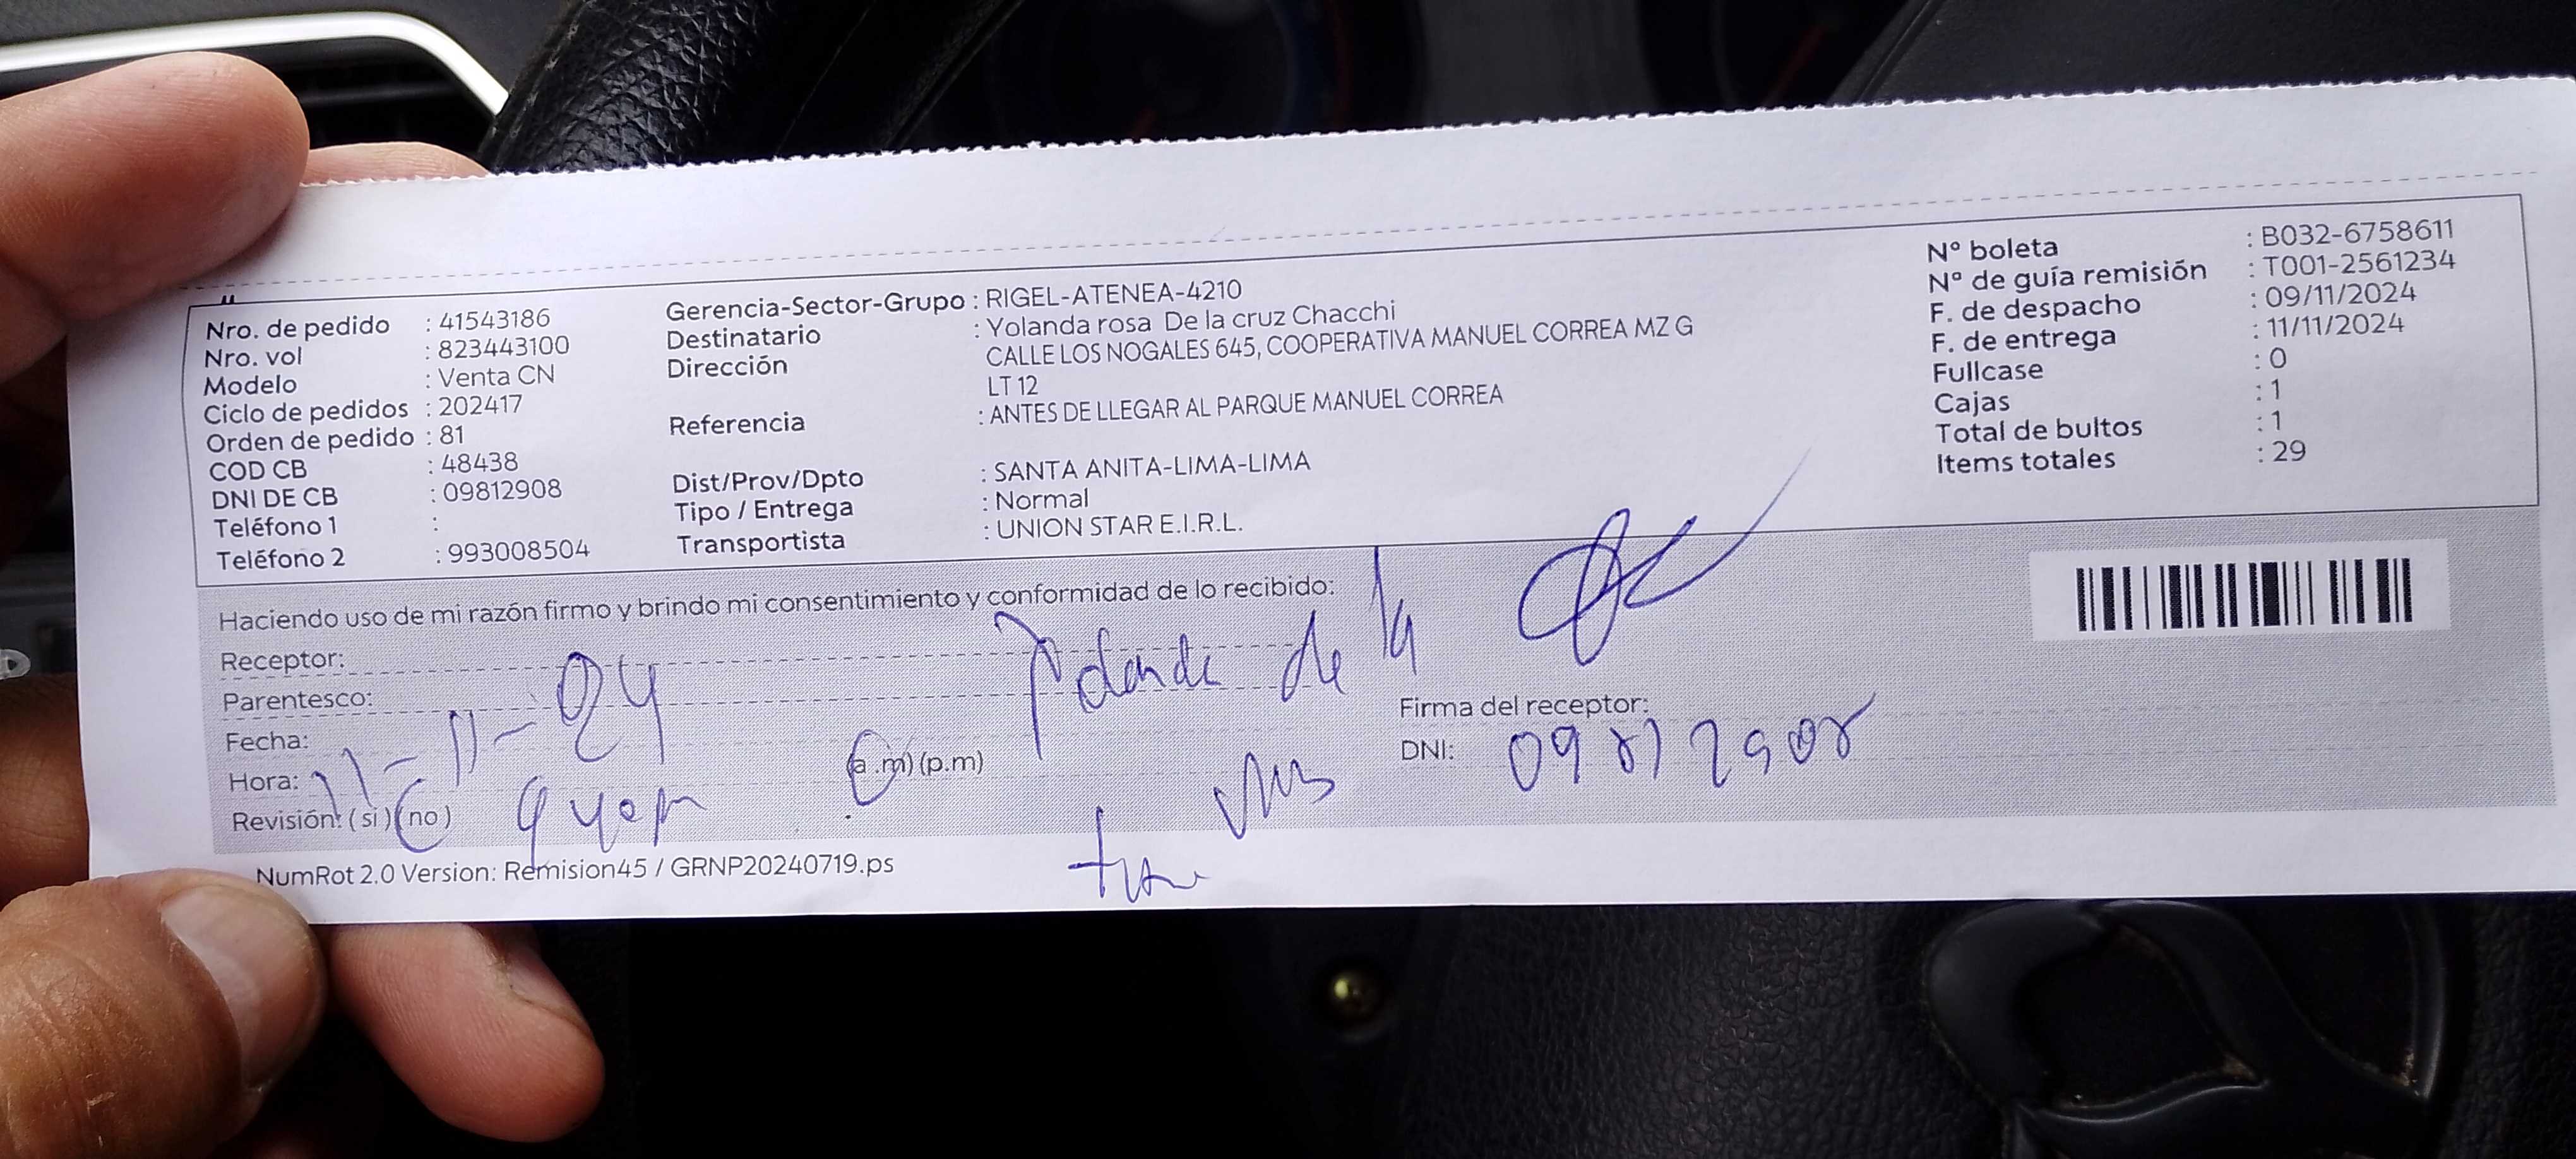 Nro. de pedido : 41543186
Nro. vol : 823443100
Modelo : Venta CN
Ciclo de pedidos : 202417
Orden de pedido : 81
COD CB : 48438
DNI DE CB : 09812908
Teléfono 1 :
Teléfono 2 : 993008504
Gerencia-Sector-Grupo : RIGEL-ATENEA-4210
Destinatario : Yolanda rosa De la cruz Chacchi
Dirección CALLE LOS NOGALES 645, COOPERATIVA MANUEL CORREA MZ G
LT 12
Referencia : ANTES DE LLEGAR AL PARQUE MANUEL CORREA
Dist/Prov/Dpto : SANTA ANITA-LIMA-LIMA
Tipo / Entrega : Normal
Transportista : UNION STAR E.I.R.L.
Nº boleta : B032-6758611
Nº de guía remisión : T001-2561234
F. de despacho : 09/11/2024
F. de entrega : 11/11/2024
Fullcase : 0
Cajas : 1
Total de bultos : 1
Items totales : 29
Haciendo uso de mi razón firmo y brindo mi consentimiento y conformidad de lo recibido:
Receptor: de la
Parentesco:
Fecha: 11-11-24
Hora: (a.m) (p.m)
Revisión: (si) (no)
Firma del receptor:
DNI: 09812908
NumRot 2.0 Version: Remision45 / GRNP20240719.ps